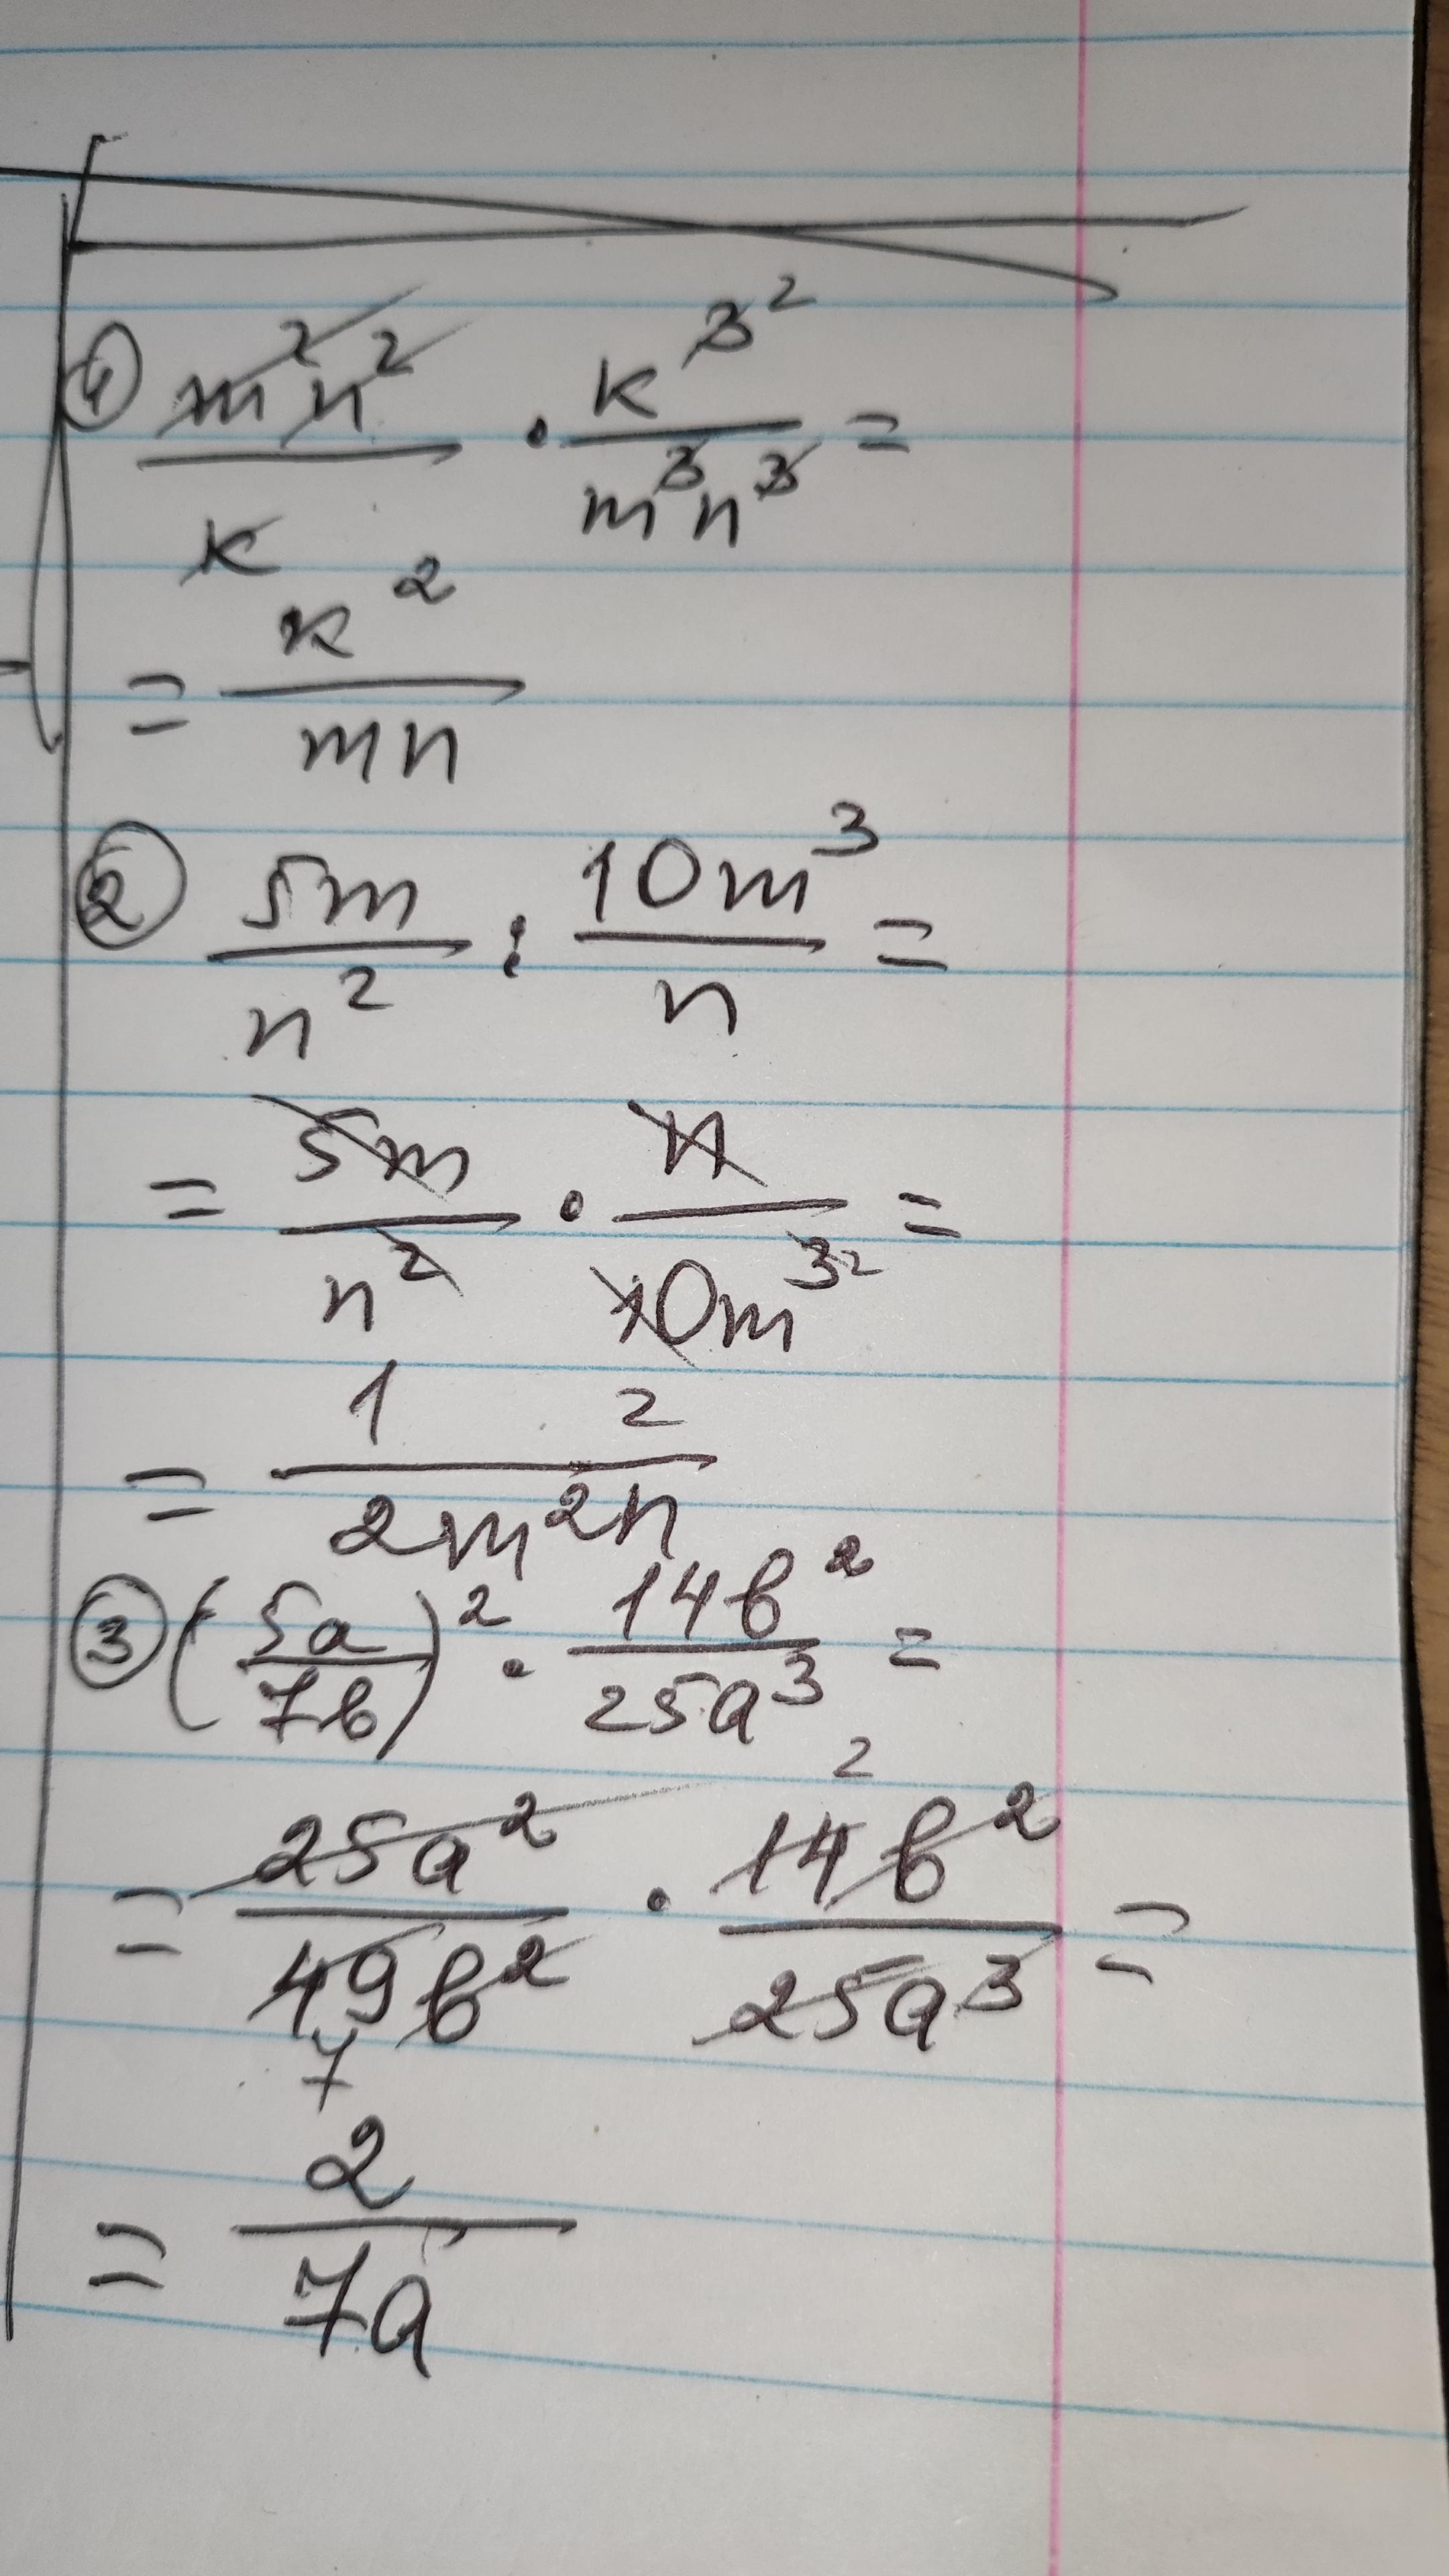 ① m²n²/k · k³ ²/m³n³ =
= k²/mn
② 5m/n² : 10m³/n =
= 5m/n² · n/10m³ ² =
2
= 1/2m²n
③ (5a/7b)² · 14b²/25a³ =
2
= 25a²/49b² · 14b²/25a³ =
7
= 2/7a